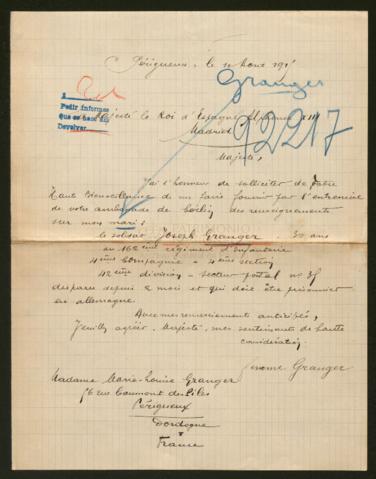 Périgueux, le 11 Aout 191
Granger
Pedir informes
que se han de
Devolver
Majesté le Roi d'Espagne Alphonse XIII
Madrid
92217
Majesté,
J'ai l'honneur de solliciter de Votre
Haute Bienveillance de me faire fournir par l'entremise
de votre ambassade de Berlin des renseignements
sur mon mari :
le soldat Joseph Granger 30 ans
au 162ème régiment d'Infanterie
4ème Compagnie - 4ème Section
42ème division - secteur postal n° 35
disparu depuis 2 mois et qui doit être prisonnier
en allemagne.
Avec mes remerciements anticipés,
Veuillez agréer, Majesté, mes sentiments de haute
considération
Femme Granger
Madame Marie-Louise Granger
rue Beaumont des
Périgueux
Dordogne
France